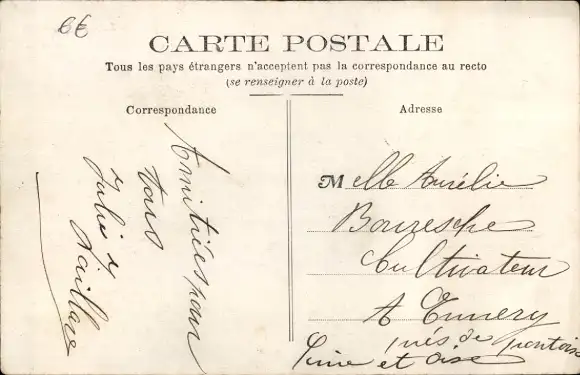 6€
CARTE POSTALE
Tous les pays étrangers n'acceptent pas la correspondance au recto
(se renseigner à la poste)
Correspondance
Amitiés pour
tous
Julie
Adresse
Melle Aurélie
Cultivateur
A Ennery
près de pontoise
Seine et oise